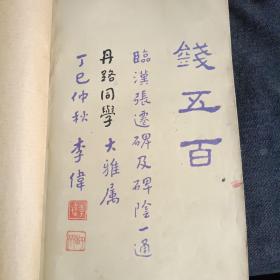 錢五百
臨漢張遷碑及碑陰一通
丹路同學大雅属
丁巳仲秋李偉